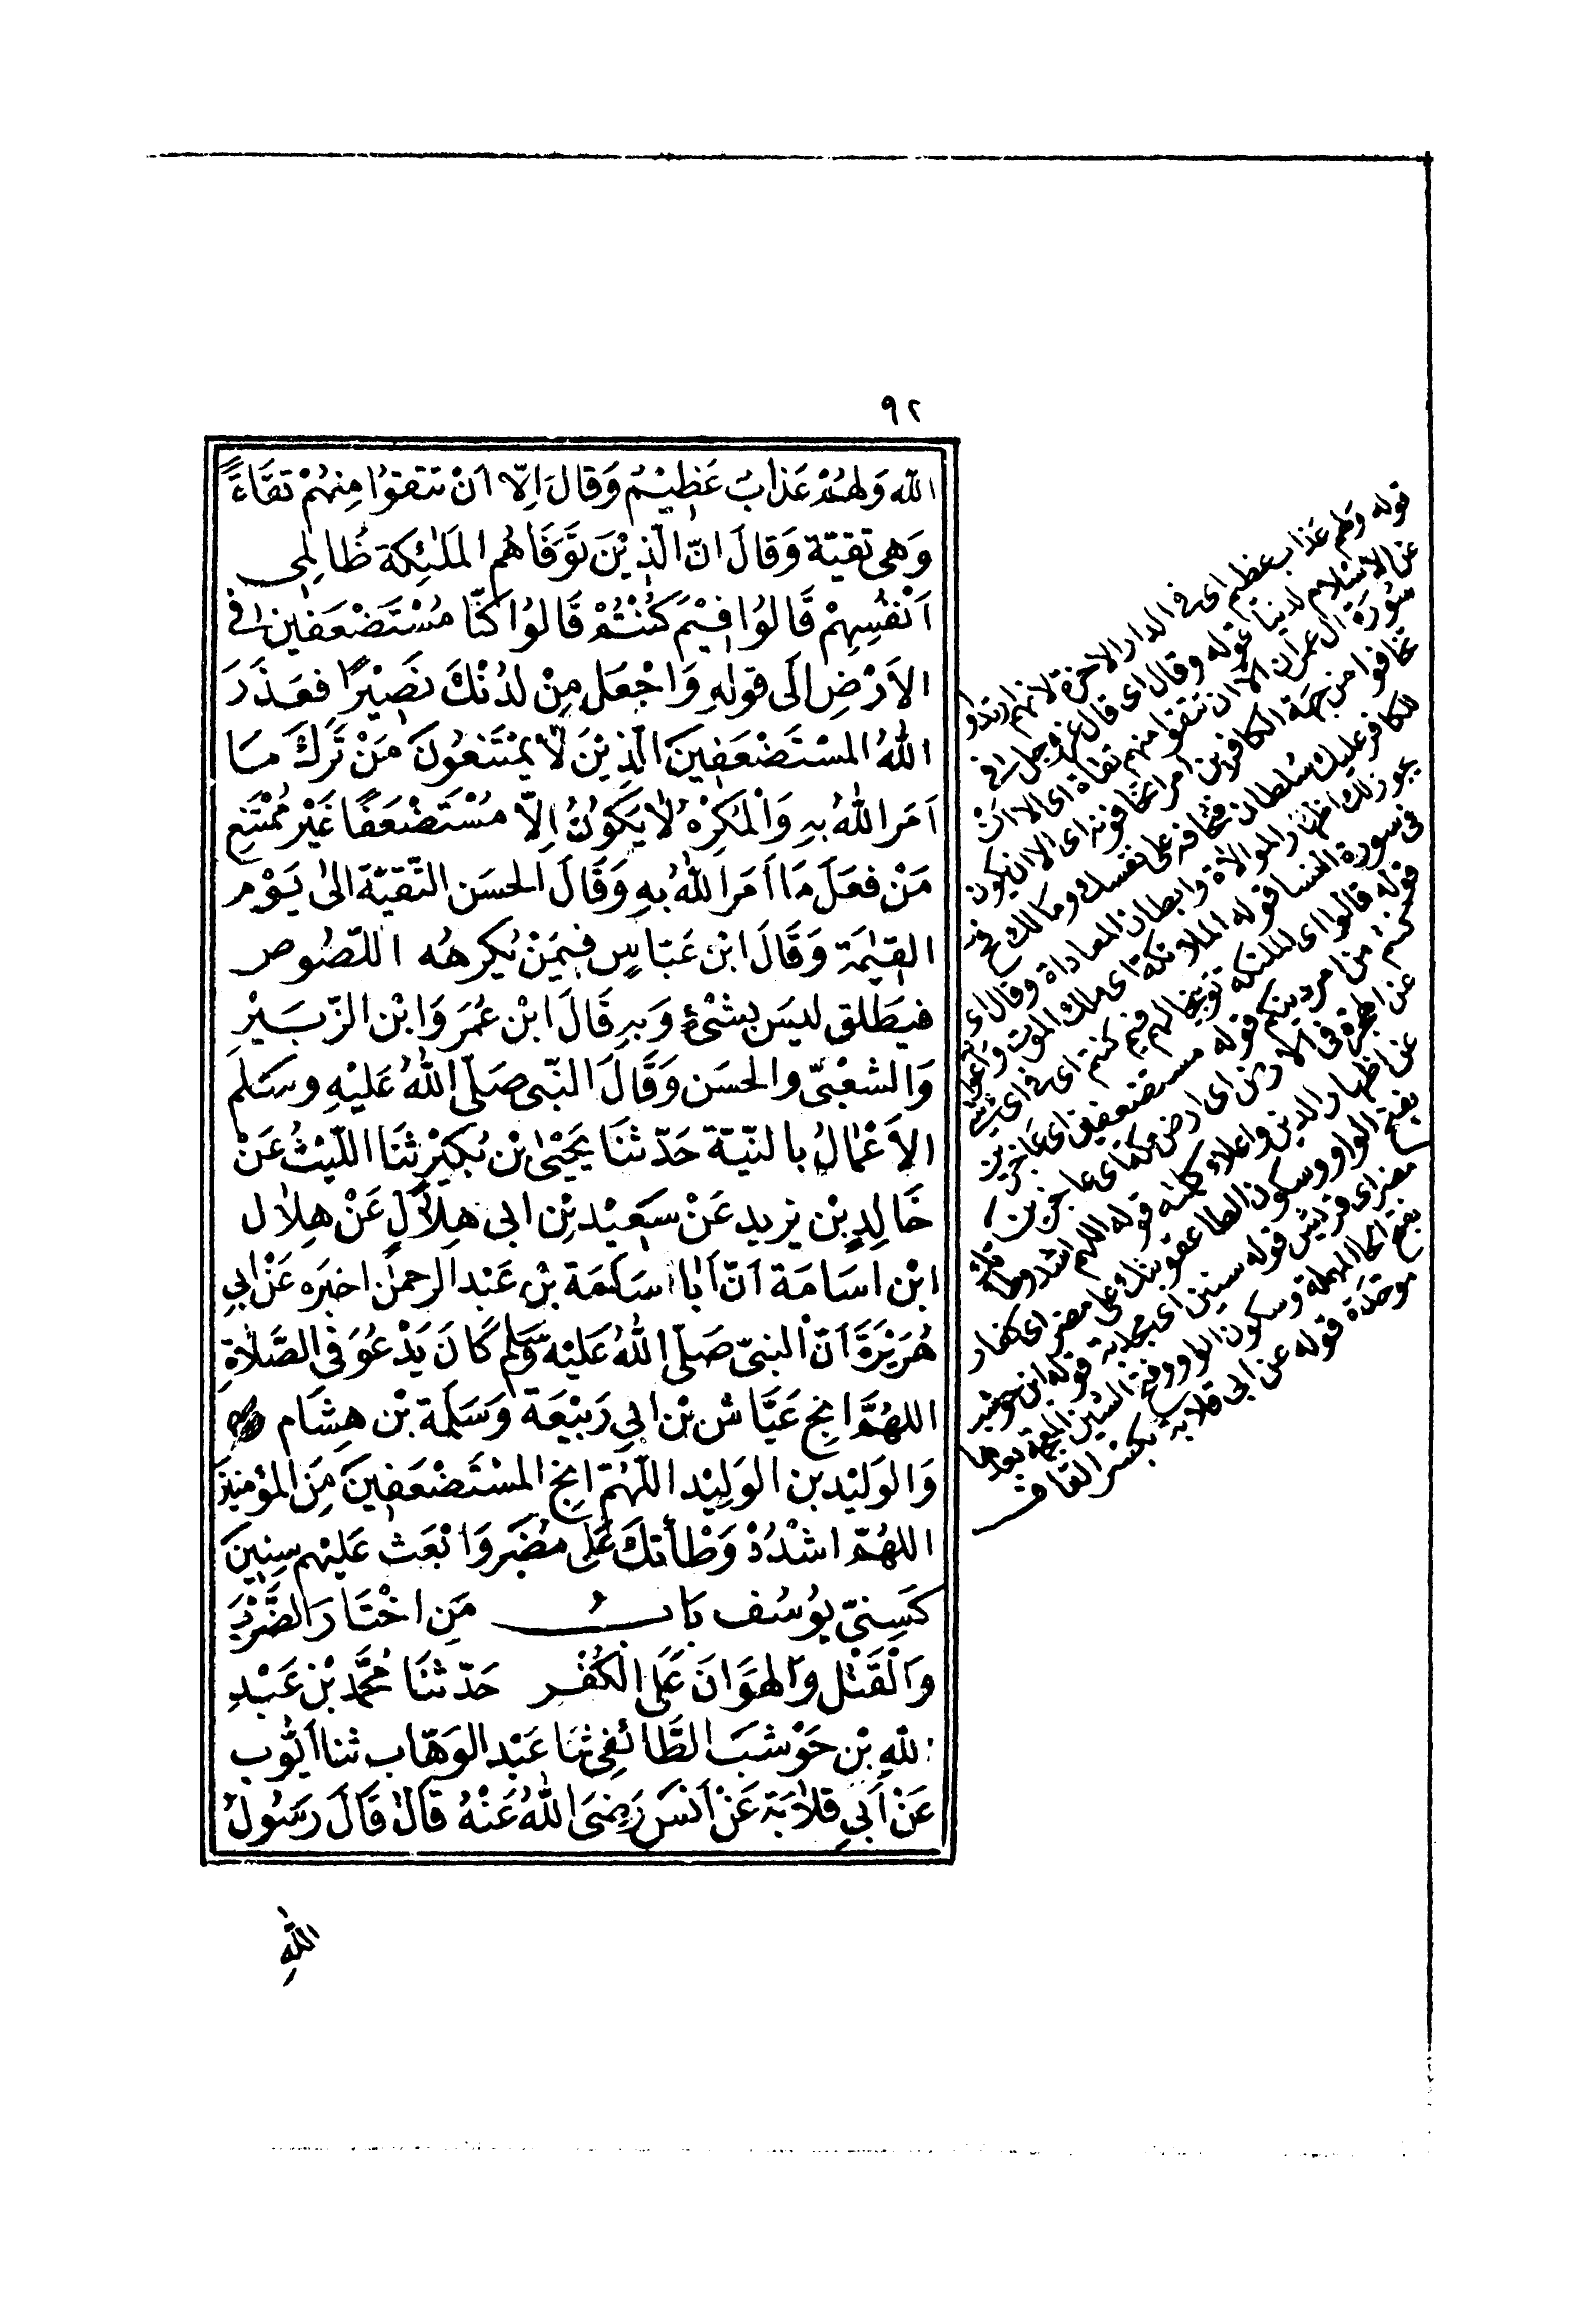 ٩٢
الله وَلهُمْ عَذَابٌ عَظِيْمٌ وَقالَ اِلّا اَنْ تتقوُا مِنهُمْ تقَاءً
وَهى تقيّة وَقالَ انّ الّذِيْنَ تَوَفَاهُم الملَٰئِكة ظَالِمِى
اَنْفُسِهِمْ قَالوُا فيْمَ كُنْتُمْ قَالوُا كنّا مُسْتَضْعَفين فى
الاَرْضِ الَى قولهِ وَاجْعَل مِنْ لدُنْكَ نَصِيْرًا فعَذَرَ
اللهُ المسْتَضْعَفِينَ الّذِيْنَ لَا يمْتَنعُونَ مَنْ تَركَ مَا
اَمَر اللهُ بهِ وَالمُكرَهُ لاٰ يَكوُنُ اِلّا مُسْتَضْعَفًا غَيْر مُمْتَنِعٍ
مَنْ فعَلَ مَا اَمَر اللهُ بهِ وَقَالَ الحسَن التّقيّة الىٰ يَوْمِ
القيٰمَة وَقَالَ ابْن عَبّاسٍ فيمَنْ يُكرهُه اللّصُوص
فيَطَلق ليسَ بشَىْءٍ وَبهِ قَالَ ابْن عُمَرَ وَابْن الزّبَيْر
وَالشعْبىّ والحسَن وَقَالَ النّبى صَلّى اللهُ عَليْهِ وسَلمَ
الاَعْمالُ بالنيّة حَدّثنَا يَحْيىٰ بْن بُكَيْر ثنَا اللّيْثُ عَنْ
خَالِدٍ بْن يزيد عَنْ سَعِيْد بْن ابى هِلَالٍ عَنْ هِلاٰل
ابْن اسَامَة اَنّ اَبَا سَلمَة بْن عَبْد الرحمٰن اخبَره عَنْ ابي
هُرَيْرَةَ اَنّ النبىّ صَلّى اللهُ عَليْه وَسَلم كَانَ يَدْعُوَ فى الصَّلاٰةِ
اللهُمَّ انِج عَيَّاش بْن ابي رَبيْعَة وَسَلمَة بْن هِشَام
وَالوَليْد بن الوَليْد اللّهُمّ انِج المسْتَضْعَفِينَ مِنَ المؤمنين
اللهُمّ اشْدُدْ وَطْأتكَ عَلى مُضَر وَابْعَث عَليْهم سِنِينَ
كَسِنىّ يوُسُف بَابُ مَن اخْتَارَ الضَّرْبَ
وَالْقَتْل وَالهوَانَ عَلَى الْكُفْر حَدّثنَا مُحَمَّد بْن عَبْدِ
اللهِ بْن حَوْشَبَ الطَّائفِى ثنَا عَبْد الوَهّاب ثنا اَيّوُب
عَنْ اَبي قلاٰبَة عَنْ اَنسَ رَضِىَ اللهُ عَنْهُ قالَ قَالَ رسَوُل
اللهِ
قوله ولهم عذاب عظيم اى فى الدار الاخرة لانهم ارتدوا
عن الاسلام لدنيا قوله وقال اى قال عز وجل فى
سورة ال عمران الا ان تتقوا منهم تقاة اى الا ان
تخافوا من جهة الكافرين امرا تخافونه اى الا ان يكون
للكافر عليك سلطان فتخافه على نفسك ومالك فح
يجوز لك اظهار الموالاة وابطان المعاداة وقال اى
فى سورة النسا قوله الملائكة اى ملك الموت واعوانه
قوله قالوا اى الملئكة توبيخا لهم فيم كنتم اى فى اى شئ
كنتم من امر دينكم قوله مستضعفين اى عاجزين
عن الهجرة فى الارض اى ارض مكة اى عاجزين
عن اظهار الدين واعلاء كلمته قوله اللهم اشدد وطأتك
بفتح الواو وسكون الطا عقوبتك على مضر اى كفار
مضر اى قريش قوله سنين اى مجدبة قوله ابن حوشب
بفتح الحا المهملة وسكون الواو وفتح الشين المعجمة بعدها
موحّدة قوله عن ابى قلابة بكسر القاف